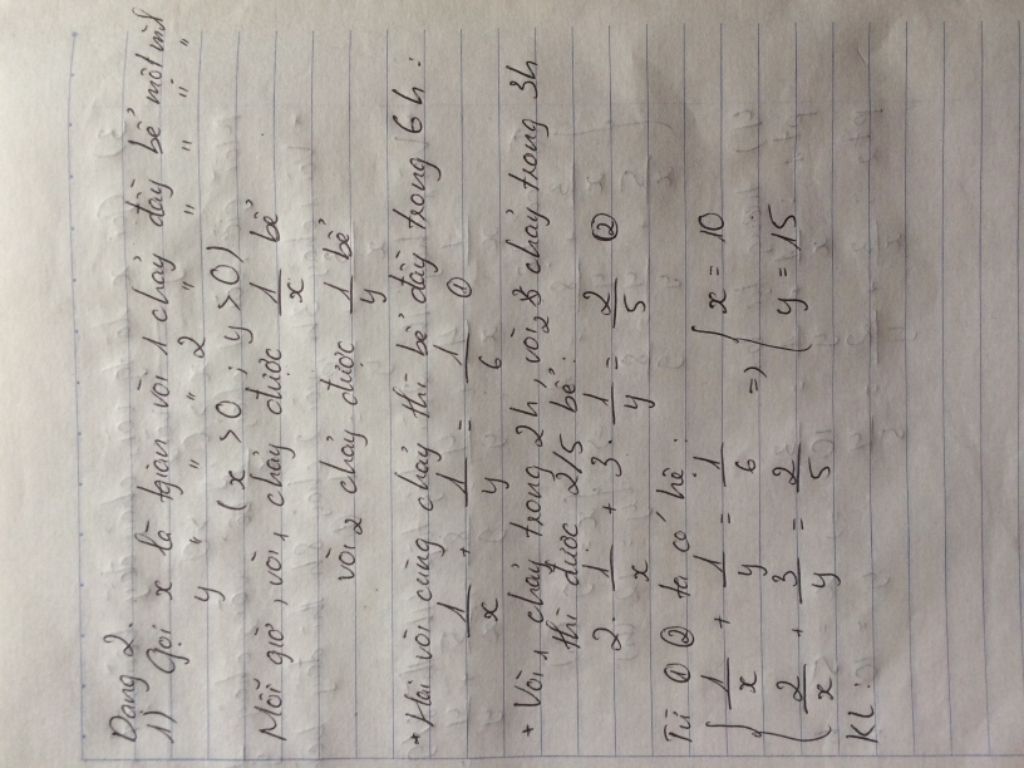 Dạng 2.
1) Gọi x là t/gian vòi 1 chảy đầy bể một mình
y " " " 2 " " " " "
(x > 0; y > 0)
Mỗi giờ, vòi 1 chảy được 1/x bể
vòi 2 chảy được 1/y bể
+ Hai vòi cùng chảy thì bể đầy trong 6h:
1/x + 1/y = 1/6 ①
+ Vòi 1 chảy trong 2h, vòi 2 chảy trong 3h
thì được 2/5 bể:
2. 1/x + 3. 1/y = 2/5 ②
Từ ① ② ta có hệ:
{ 1/x + 1/y = 1/6
{ 2/x + 3/y = 2/5
=> { x = 10
{ y = 15
KL: